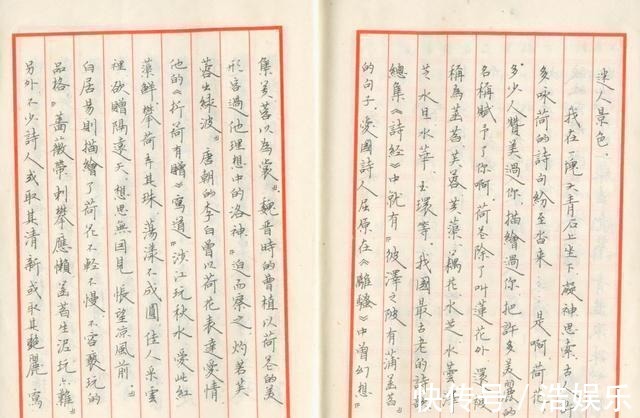 迷人景色。
我在塊大青石上坐下,凝神思索,古
多咏荷的詩句紛至沓來……是啊,荷花
多少人贊美過你,描繪過你,把許多美麗
名稱賦予了你啊。荷花除了叫蓮花外,還
稱為菡萏、芙蓉、芙蕖、藕花、水芝、水
芝、水旦、水華、玉環等。我國最古老的詩
總集《詩經》中就有"彼澤之陂,有蒲菡萏
的句子,愛國詩人屈原在《離騷》中曾幻想
集芙蓉以為裳"。魏晉時的曹植以荷花的美
形容過他理想中的洛神"迫而察之,灼若芙
蓉出綠波"。唐朝的李白曾以荷花表達愛情
他的《折荷有贈》寫道"涉江玩秋水,愛此紅
蕖鮮,攀荷弄其珠,蕩漾不成圓,佳人采雲
裡,欲贈隔遠天。想思無因見,悵望涼風前。"
白居易則描繪了荷花不輕不慢、不容褻玩的
品格,"薔薇帶刺攀應懶,菡萏生泥玩亦難"
另外不少詩人或取其清新或取其艷麗,寫
快传号/浩娱乐